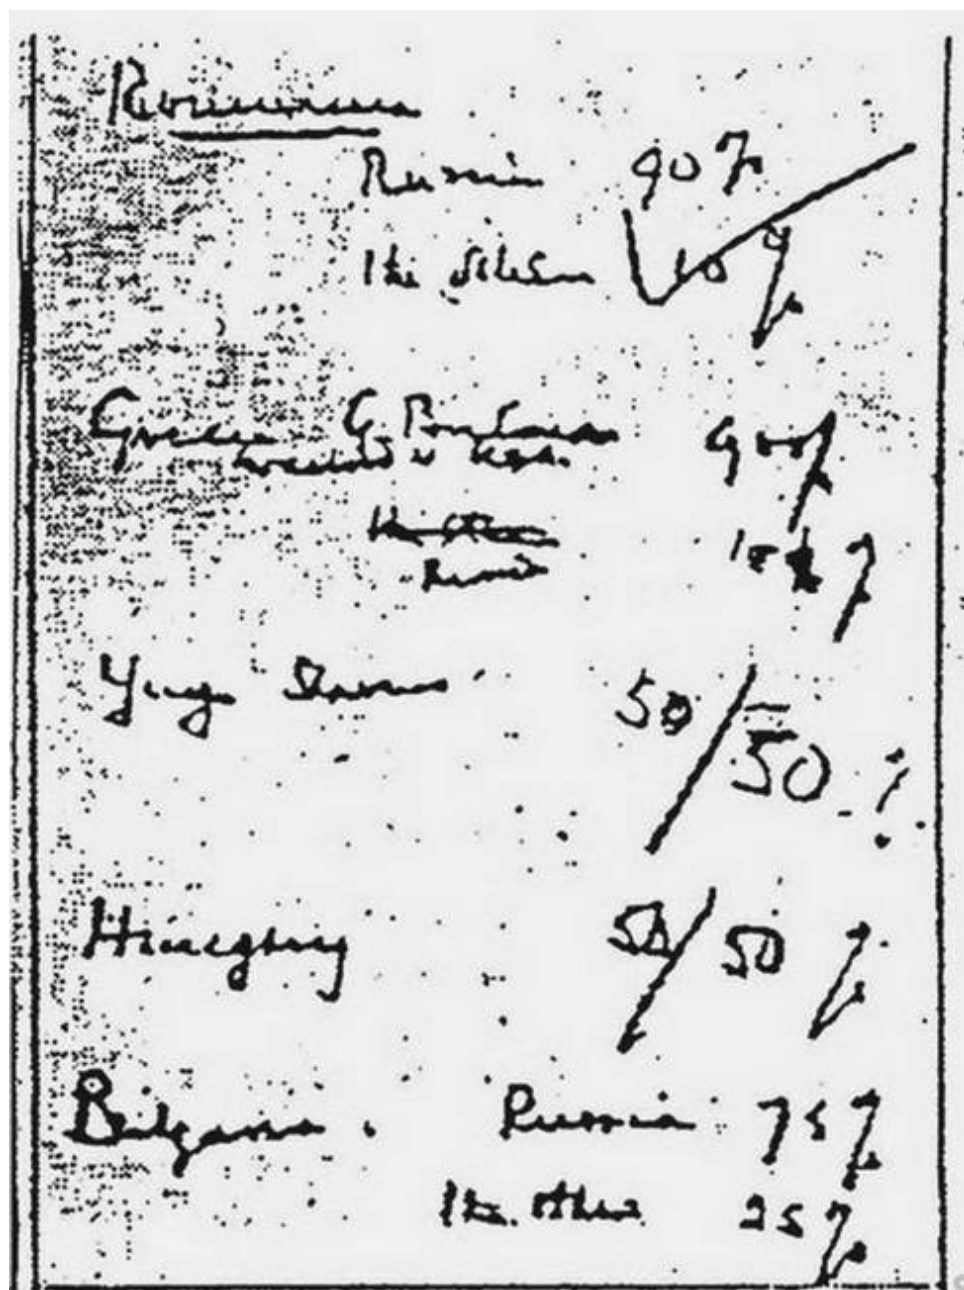 Roumania
Russia 90%
The others 10%
Greece G. Britain 90%
in accord w USA.
Russia 10%
Yugoslavia 50/50%
Hungary 50/50%
Bulgaria. Russia 75%
The others 25%